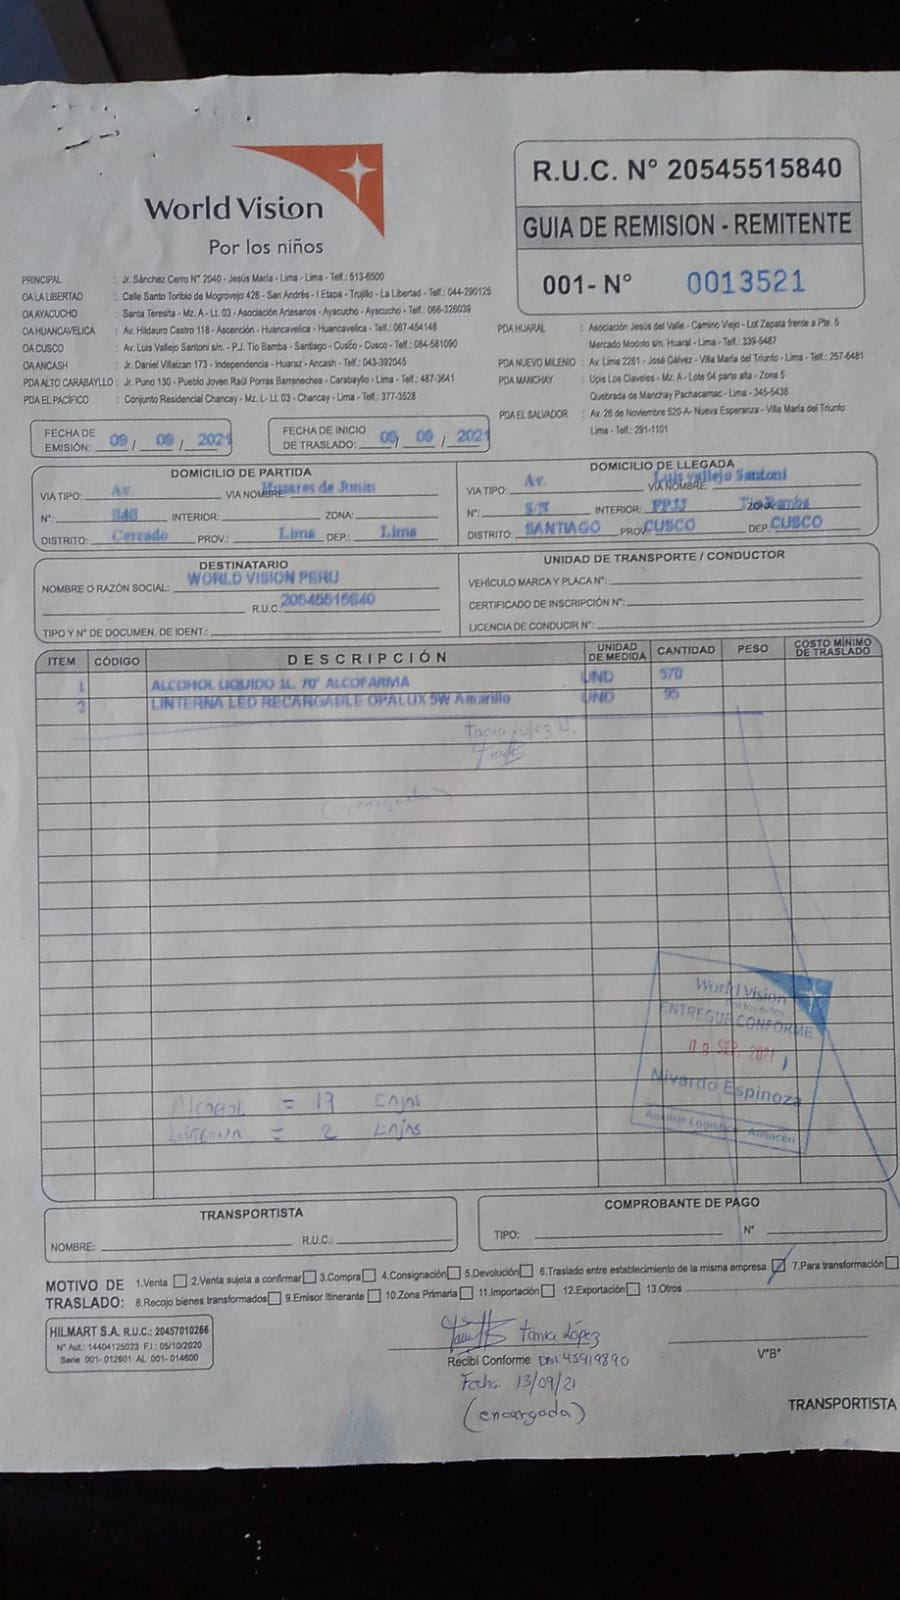 World Vision
Por los niños
R.U.C. N° 20545515840
GUIA DE REMISION - REMITENTE
001- N° 0013521
PRINCIPAL : Jr. Sánchez Cerro N° 2040 - Jesús María - Lima - Lima - Telf.: 513-6500
OA LA LIBERTAD : Calle Santo Toribio de Mogrovejo 426 - San Andrés - I Etapa - Trujillo - La Libertad - Telf.: 044-290125
OA AYACUCHO : Santa Teresita - Mz. A - Lt. 03 - Asociación Artesanos - Ayacucho - Ayacucho - Telf.: 066-326039
OA HUANCAVELICA : Av. Hildauro Castro 118 - Ascención - Huancavelica - Huancavelica - Telf.: 067-454148
OA CUSCO : Av. Luis Vallejo Santoni s/n. - P.J. Tío Bamba - Santiago - Cusco - Cusco - Telf.: 084-581090
OA ANCASH : Jr. Daniel Villaizan 173 - Independencia - Huaraz - Ancash - Telf.: 043-392045
PDA ALTO CARABAYLLO : Jr. Puno 130 - Pueblo Joven Raúl Porras Barrenechea - Carabayllo - Lima - Telf.: 487-3641
PDA EL PACÍFICO : Conjunto Residencial Chancay - Mz. L - Lt. 03 - Chancay - Lima - Telf.: 377-3528
PDA HUARAL : Asociación Jesús del Valle - Camino Viejo - Lot Zapata frente a Pte. 5
Mercado Modelo s/n. Huaral - Lima - Telf.: 339-5487
PDA NUEVO MILENIO : Av. Lima 2261 - José Gálvez - Villa María del Triunfo - Lima - Telf.: 257-6481
PDA MANCHAY : Upis Los Claveles - Mz. A - Lote 04 parte alta - Zona 5
Quebrada de Manchay Pachacamac - Lima - 345-5438
PDA EL SALVADOR : Av. 26 de Noviembre 520-A- Nueva Esperanza - Villa María del Triunfo
Lima - Telf.: 291-1101
FECHA DE EMISIÓN: 09 / 09 / 2021
FECHA DE INICIO DE TRASLADO: 09 / 09 / 2021
DOMICILIO DE PARTIDA
VIA TIPO: Av. VIA NOMBRE: Husares de Junin
N°: INTERIOR: ZONA:
DISTRITO: Cercado PROV.: Lima DEP.: Lima
DOMICILIO DE LLEGADA
VIA TIPO: Av. VIA NOMBRE: Luis vallejo Santoni
N°: S/N INTERIOR: PPJJ ZONA: Tio Bamba
DISTRITO: SANTIAGO PROV. CUSCO DEP. CUSCO
DESTINATARIO
NOMBRE O RAZÓN SOCIAL: WORLD VISION PERU
R.U.C. 20545515840
TIPO Y N° DE DOCUMEN. DE IDENT.:
UNIDAD DE TRANSPORTE / CONDUCTOR
VEHÍCULO MARCA Y PLACA N°:
CERTIFICADO DE INSCRIPCIÓN N°:
LICENCIA DE CONDUCIR N°:
ITEM CÓDIGO DESCRIPCIÓN UNIDAD DE MEDIDA CANTIDAD PESO COSTO MÍNIMO DE TRASLADO
1 ALCOHOL LIQUIDO 1L. 70° ALCOFARMA UND 570
2 LINTERNA LED RECARGABLE OPALUX 5W Amarillo UND 95
Tania
(encargada)
World Vision
ENTREGUE CONFORME
09 SEP. 2021
Nivardo Espinoza
Auxiliar Logística Almacén
Alcohol = 19 cajas
Linterna = 2 cajas
TRANSPORTISTA
NOMBRE: R.U.C.:
COMPROBANTE DE PAGO
TIPO: N°
MOTIVO DE TRASLADO: 1.Venta 2.Venta sujeta a confirmar 3.Compra 4.Consignación 5.Devolución 6.Traslado entre establecimiento de la misma empresa 7.Para transformación
8.Recojo bienes transformados 9.Emisor Itinerante 10.Zona Primaria 11.Importación 12.Exportación 13.Otros
HILMART S.A. R.U.C.: 20457010266
N° Aut.: 14404125023 F.I.: 05/10/2020
Serie 001- 012601 AL 001- 014600
Tania López
Recibí Conforme DNI 45919890
Fecha 13/09/21
(encargada)
V°B°
TRANSPORTISTA